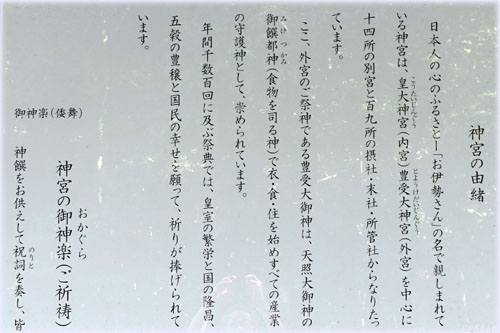 神宮の由緒
日本人の心のふるさと―「お伊勢さん」の名で親しまれて
こうたいじんぐう とようけだいじんぐう
いる神宮は、皇大神宮(内宮)豊受大神宮(外宮)を中心に
十四所の別宮と百九所の摂社・末社・所管社からなりたっ
ています。
ここ、外宮のご祭神である豊受大御神は、天照大御神の
みけつかみ
御饌都神(食物を司る神)で衣・食・住を始めすべての産業
の守護神として、崇められています。
年間千数百回に及ぶ祭典では、皇室の繁栄と国の隆昌、
五穀の豊穣と国民の幸せを願って、祈りが捧げられて
います。
おかぐら
神宮の御神楽(ご祈祷)
のりと
神饌をお供えして祝詞を奏し、皆
御神楽(倭舞)